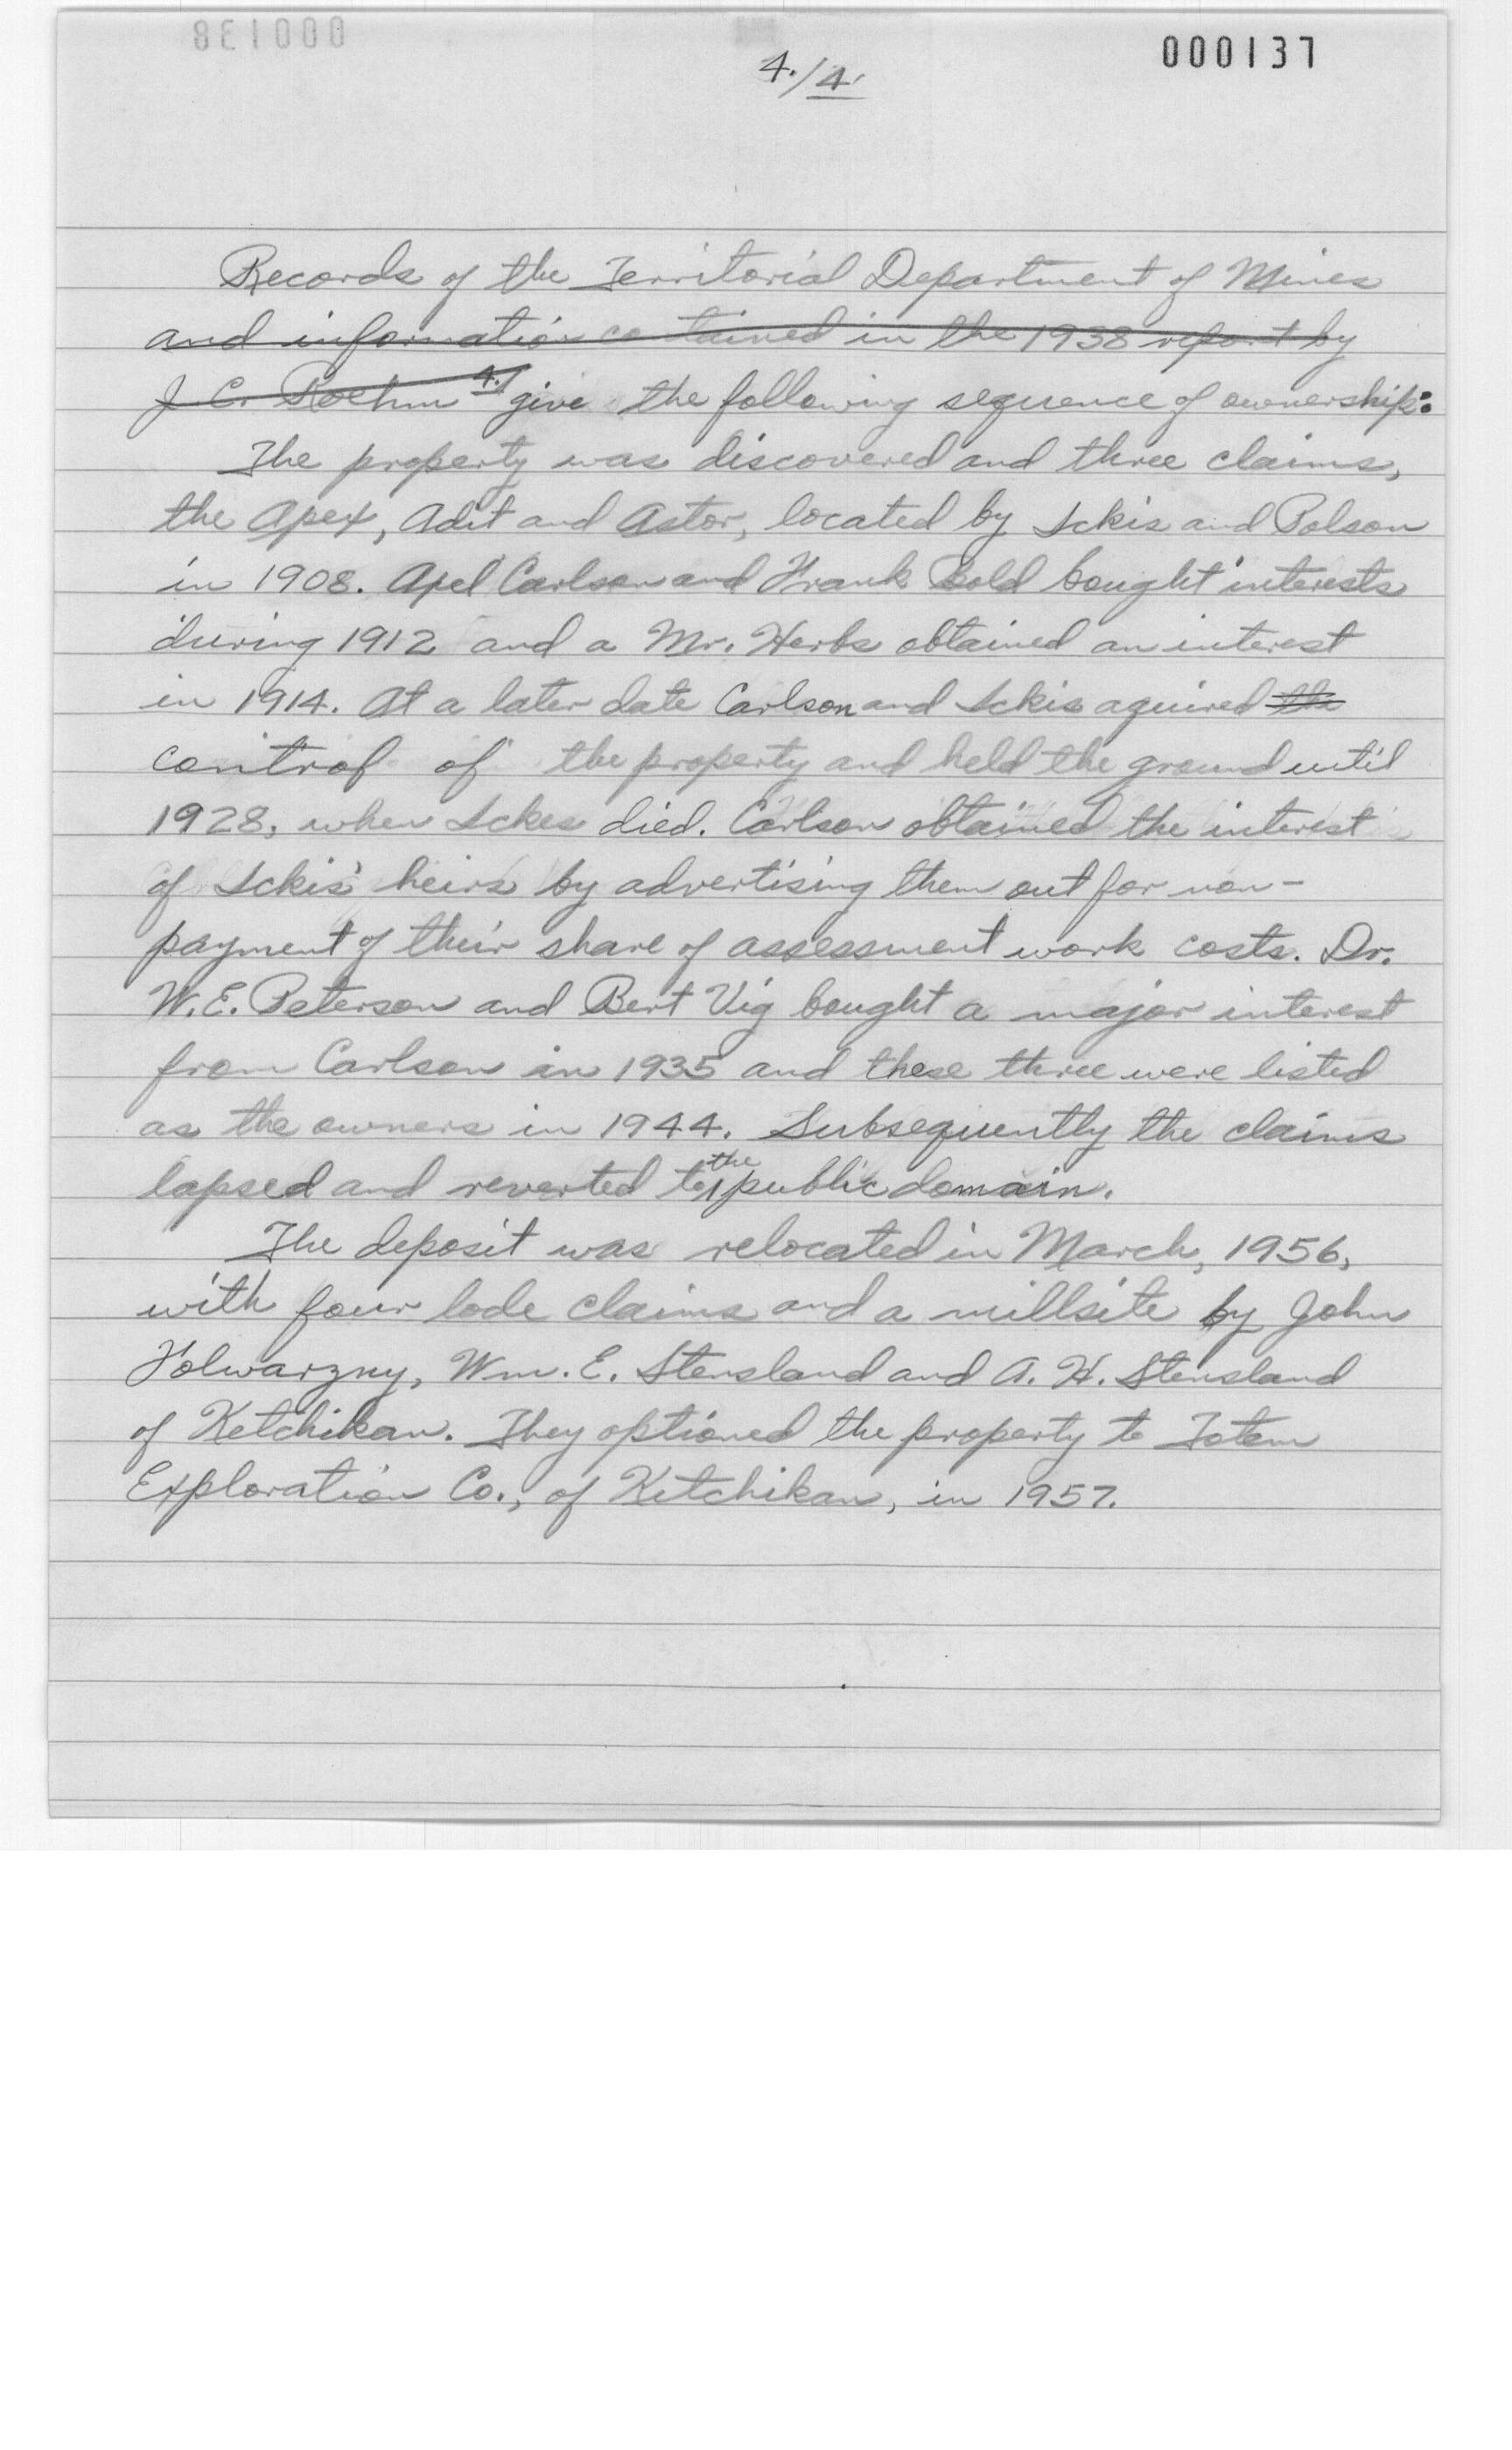 000137
4./4.
Records of the Territorial Department of Mines
and information contained in the 1938 report by
J. C. Roehm 4./ give the following sequence of ownership:
The property was discovered and three claims,
the Apex, Adit and Astor, located by Ickis and Polson
in 1908. Apel Carlson and Frank Bold bought interests
during 1912 and a Mr. Herbs obtained an interest
in 1914. At a later date Carlson and Ickis aquired the
control of the property and held the ground until
1928, when Ickes died. Carlson obtained the interest
of Ickis' heirs by advertising them out for non-
payment of their share of assessment work costs. Dr.
W. E. Peterson and Bert Vig bought a major interest
from Carlson in 1935 and these three were listed
as the owners in 1944. Subsequently the claims
lapsed and reverted to the public domain.
The deposit was relocated in March, 1956,
with four lode claims and a millsite by John
Holwarzny, Wm. E. Stensland and A. H. Stensland
of Ketchikan. They optioned the property to Totem
Exploration Co., of Ketchikan, in 1957.